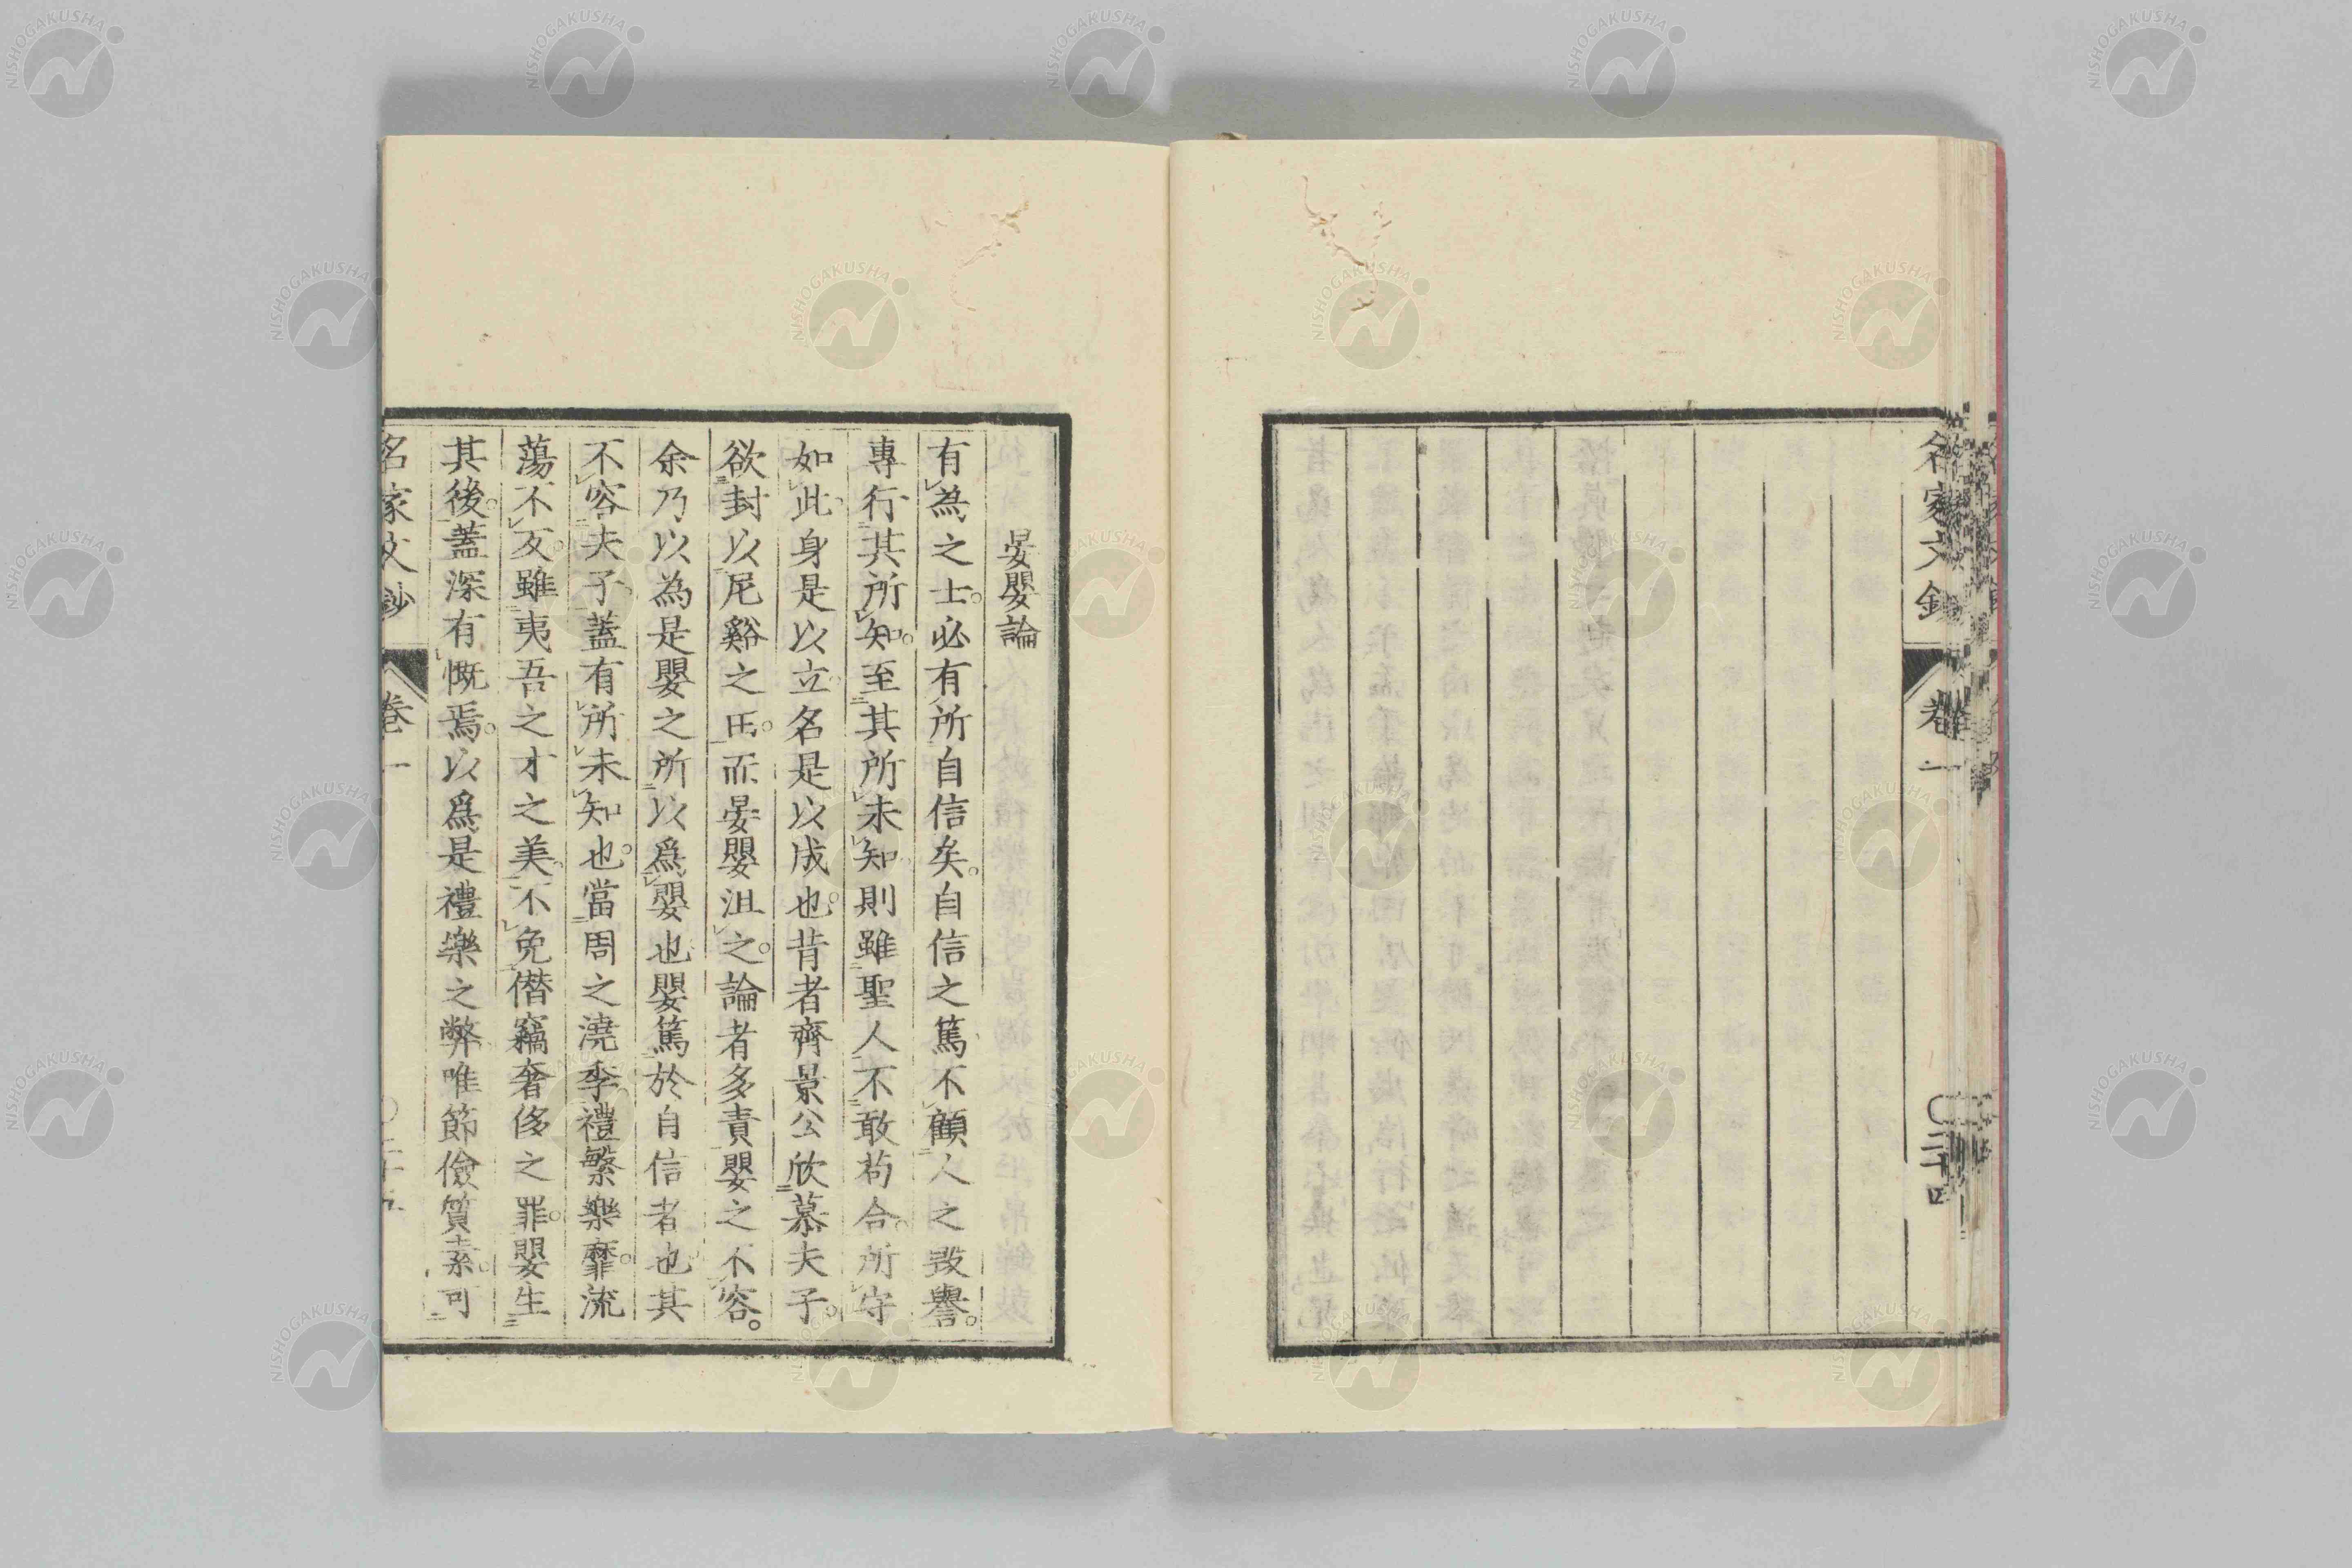 名家文鈔
卷一
〇二十四
晏嬰論
有為之士。必有所自信矣。自信之篤不顧人之毀譽。
專行其所知。至其所未知則雖聖人不敢苟合。所守
如此。身是以立。名是以成也。昔者齊景公欣慕夫子。
欲封以尼谿之田。而晏嬰沮之。論者多責嬰之不容。
余乃以為是嬰之所以爲嬰也。嬰篤於自信者也。其
不容夫子。蓋有所未知也。當周之澆季禮繁樂靡。流
蕩不反。雖夷吾之才之美。不免僭竊奢侈之罪。嬰生
其後。蓋深有慨焉。以爲是禮樂之弊。唯節儉質素。可
名家文鈔
卷一
NISHOGAKUSHA